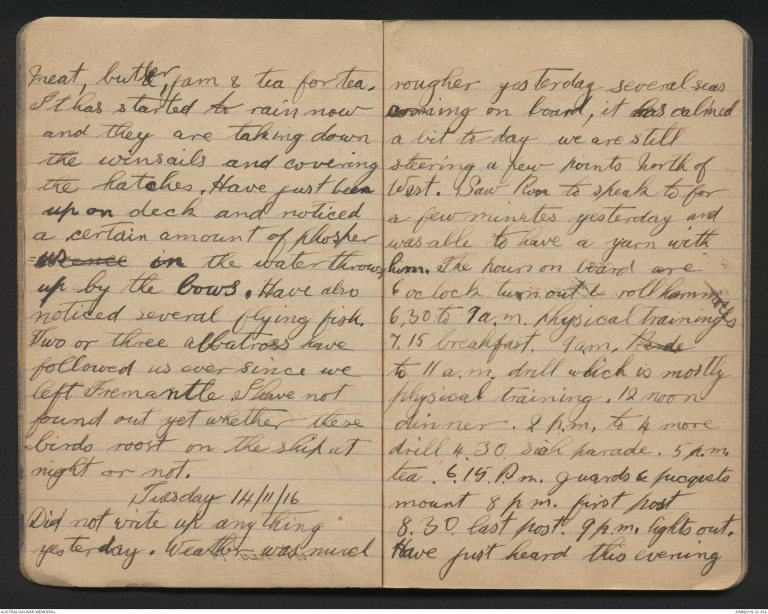 meat, butter, jam & tea for tea.
It has started to rain now
and they are taking down
the winsails and covering
the hatches. Have just been
up on deck and noticed
a certain amount of phosper
=esence on the water thrown
up by the bows. Have also
noticed several flying fish.
Two or three albatross have
followed us ever since we
left Fremantle I have not
found out yet whether these
birds roost on the ship at
night or not.
Tuesday 14/11/16
Did not write up anything
yesterday. Weather was much
rougher yesterday several seas
coming on board, it has calmed
a bit to day we are still
steering a few points North of
West. Saw Ron to speak to for
a few minutes yesterday and
was able to have a yarn with
him. The hours on board are
6 oclock turn out & roll hammocks
6.30 to 7 a.m. physical training
7.15 breakfast. 9 am. Parade
to 11 a.m. drill which is mostly
physical training. 12 noon
dinner. 2 p.m. to 4 more
drill 4.30 sick parade. 5 p.m.
tea. 6.15 P.m. guards & picquets
mount 8 p m. first post
8.30 last post. 9 p.m. lights out.
Have just heard this evening
AUSTRALIAN WAR MEMORIAL